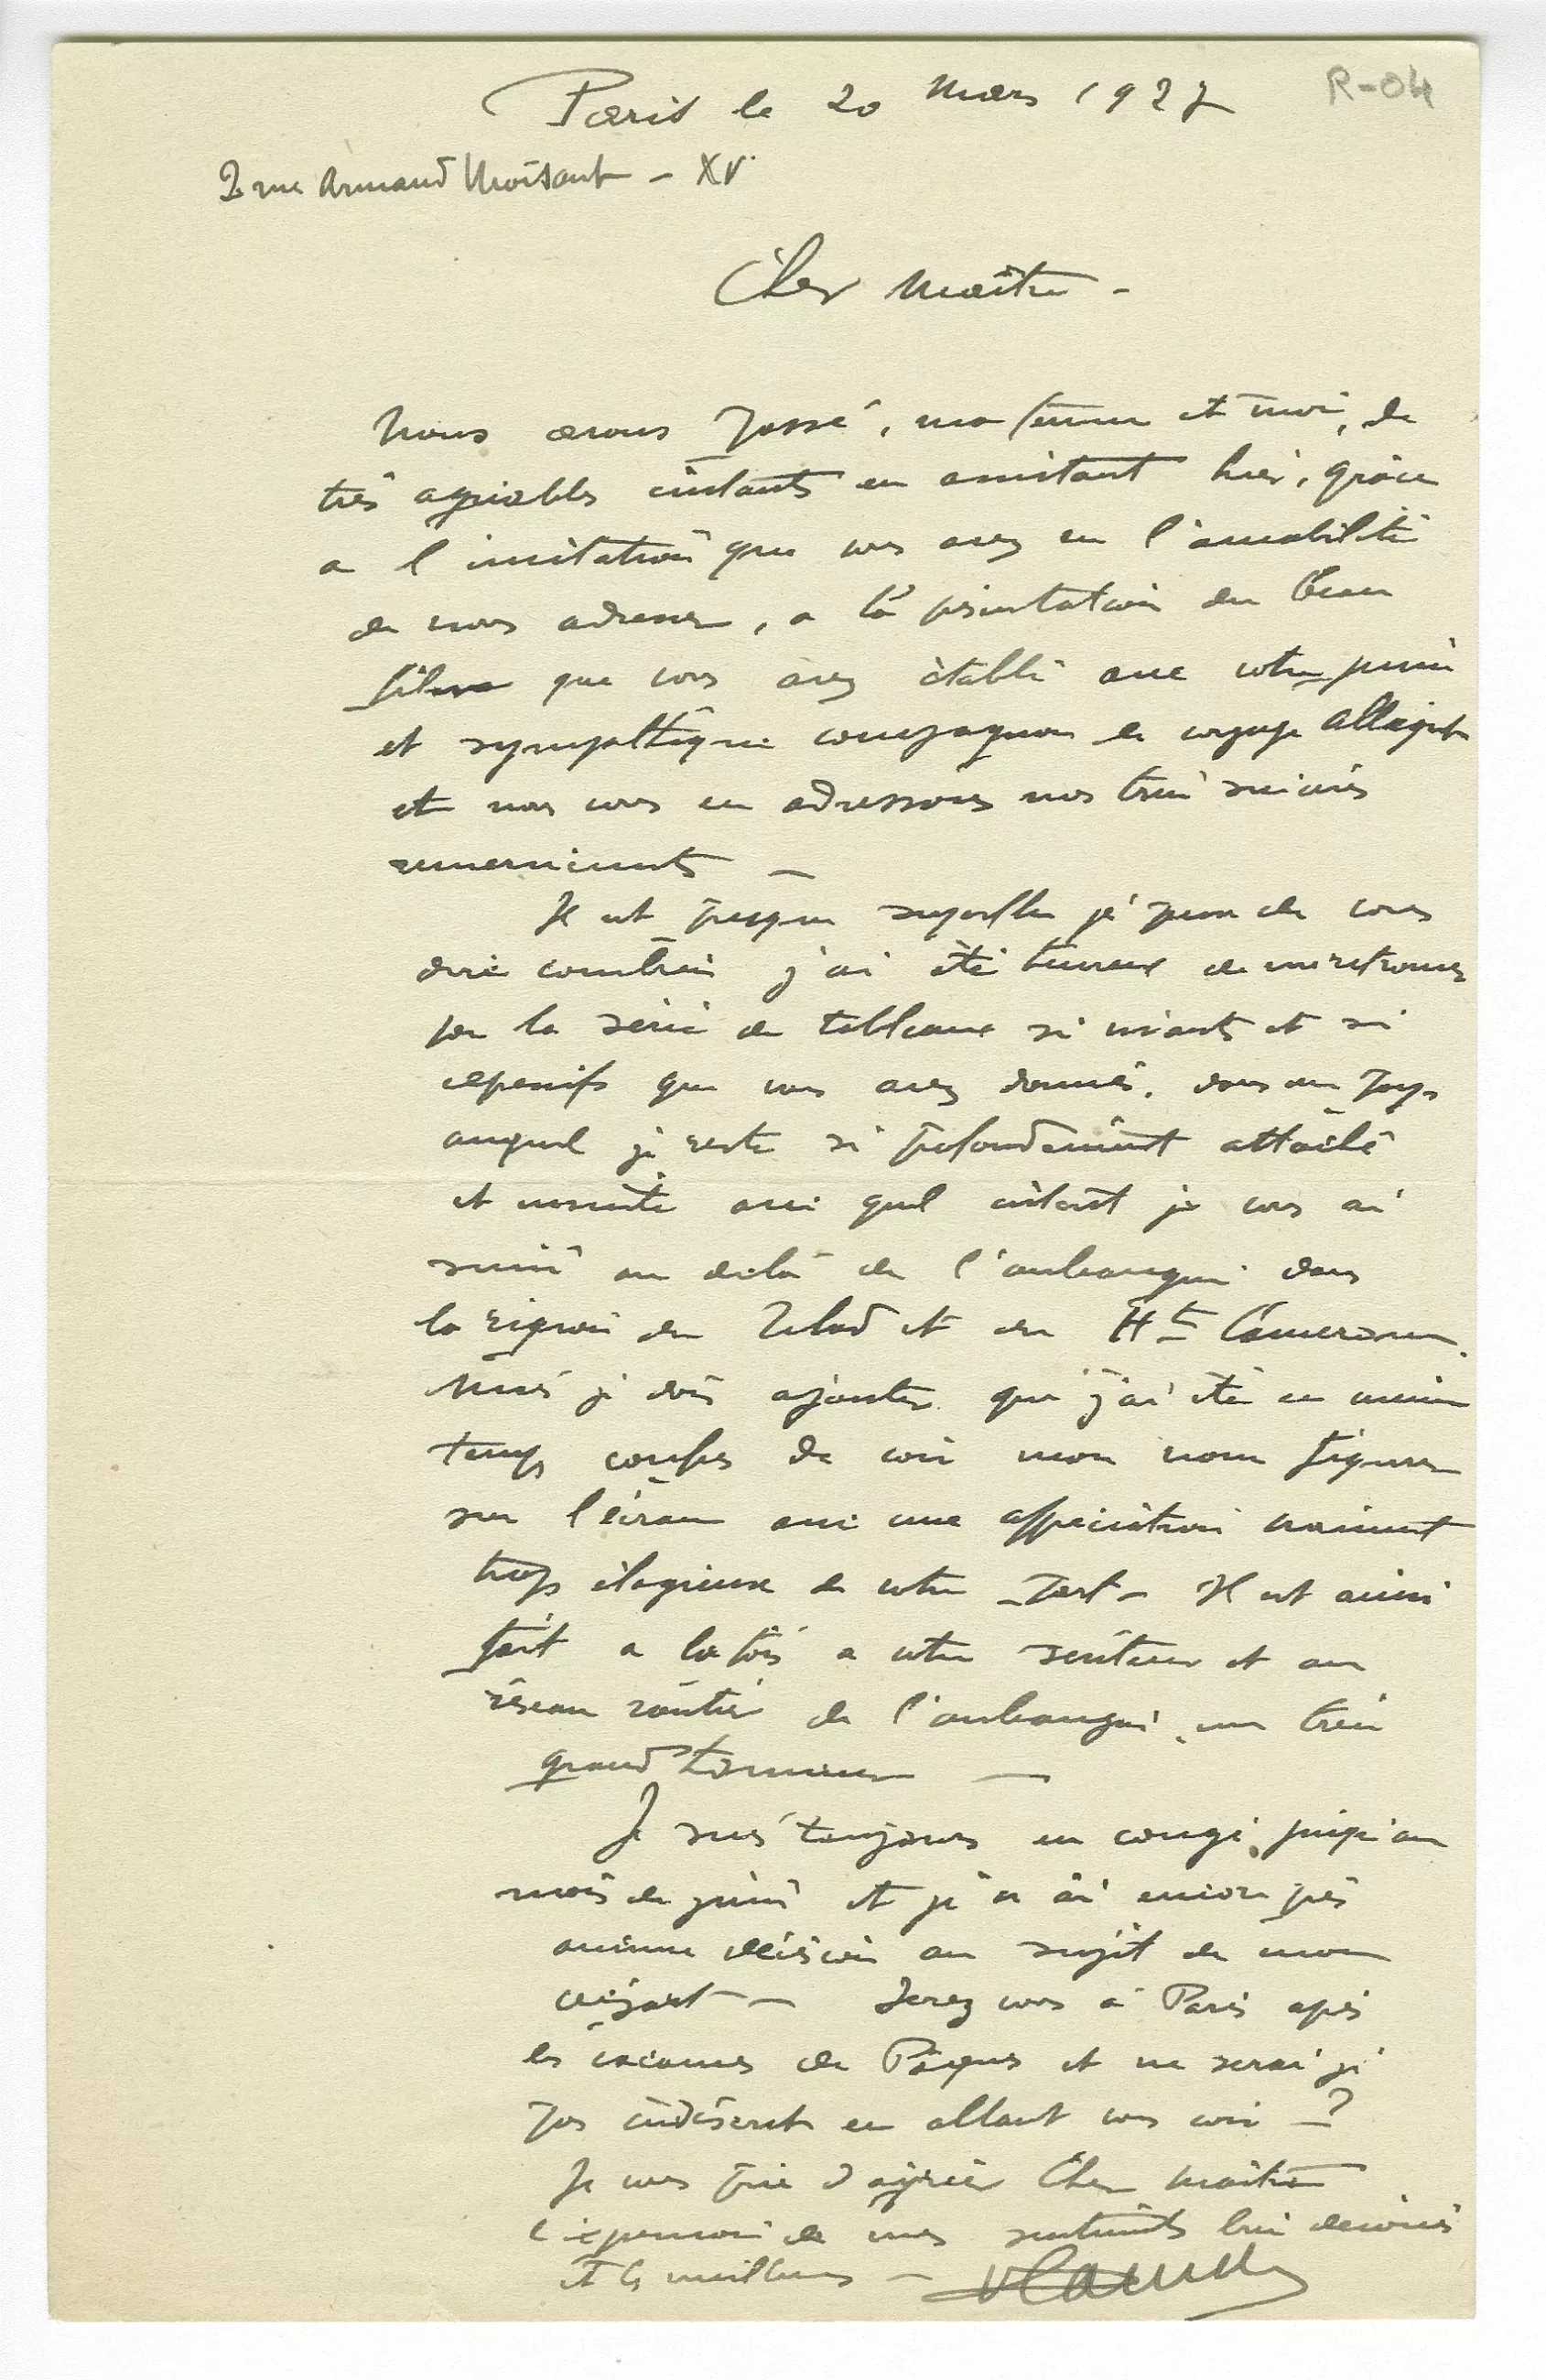 Paris le 20 Mars 1927
R-04
2 rue Armand Moisant - XV.
Cher Maître -
Nous avons passé, ma femme et moi, de
très agréables instants en assistant hier, grâce
a l'invitation que vous avez eu l'amabilité
de nous adresser, a la présentation du beau
film que vous avez établi avec votre
et sympathique compagnon de voyage Allégret
et nous vous en adressons nos très sincères
remerciements —
Il est presque superflu je pense de vous
dire combien j'ai été heureux de me retrouver
par la série de tableaux si vivants et si
expressifs que vous avez donnés, dans un pays
auquel je reste si profondément attaché
et ensuite avec quel intérêt je vous ai
suivi au delà de l'oubangui dans
la région du Tchad et du Ht Cameroun.
Mais je dois ajouter que j'ai été en même
temps confus de voir mon nom figurer
sur l'écran avec une appréciation vraiment
trop élogieuse de votre part - Il est ainsi
fait a la fois a votre serviteur et au
réseau routier de l'oubangui, un très
grand honneur —
Je suis toujours en congé, jusqu'au
mois de juin et je n'ai encore pris
aucune décision au sujet de mon
départ - Serez vous à Paris après
les vacances de Pâques et ne serai je
pas indiscret en allant vous voir - ?
Je vous prie d'agréer Cher Maître
l'expression de mes sentiments bien dévoués
et les meilleurs -